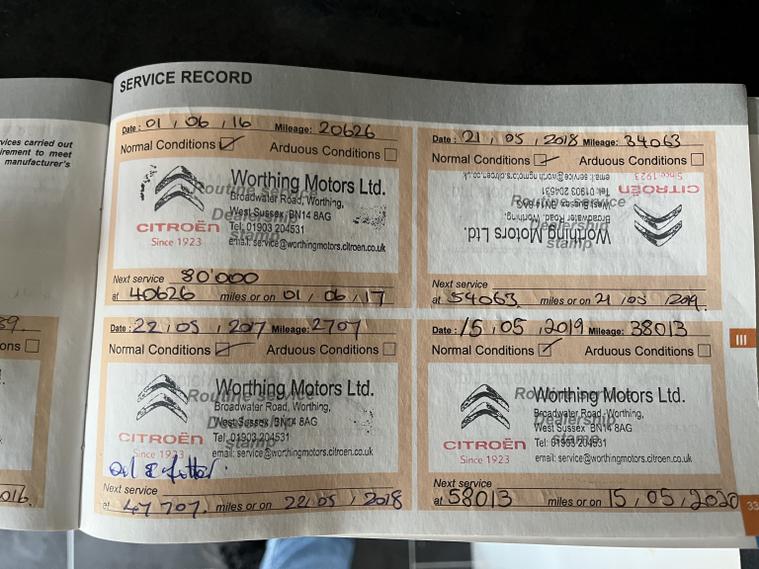 SERVICE RECORD
vices carried out
irement to meet
manufacturer's
Date: 01, 06, 16 Mileage: 20626
Normal Conditions Arduous Conditions
Routine service
Dealership
stamp
Worthing Motors Ltd.
Broadwater Road, Worthing,
West Sussex, BN14 8AG
Tel: 01903 204531
email: service@worthingmotors.citroen.co.uk
CITROËN
Since 1923
Next service 80'000
at 40626 miles or on 01, 06, 17
Date: 21, 05, 2018 Mileage: 34063
Normal Conditions Arduous Conditions
Routine service
Dealership
stamp
Worthing Motors Ltd.
Broadwater Road, Worthing,
West Sussex, BN14 8AG
Tel: 01903 204531
email: service@worthingmotors.citroen.co.uk
CITROËN
Since 1923
Next service
at 54063 miles or on 21, 05, 2019.
Date: 22, 05, 2017 Mileage: 2707
Normal Conditions Arduous Conditions
Routine service
Dealership
stamp
Worthing Motors Ltd.
Broadwater Road, Worthing,
West Sussex, BN14 8AG
Tel: 01903 204531
email: service@worthingmotors.citroen.co.uk
CITROËN
Since 1923
Next service
at 47707. miles or on 22, 05, 2018
Date: 15, 05, 2019 Mileage: 38013
Normal Conditions Arduous Conditions
Routine service
Dealership
stamp
Worthing Motors Ltd.
Broadwater Road, Worthing,
West Sussex, BN14 8AG
Tel: 01903 204531
email: service@worthingmotors.citroen.co.uk
CITROËN
Since 1923
Next service
at 58013 miles or on 15, 05, 2020
39.
ons
016.
III
33